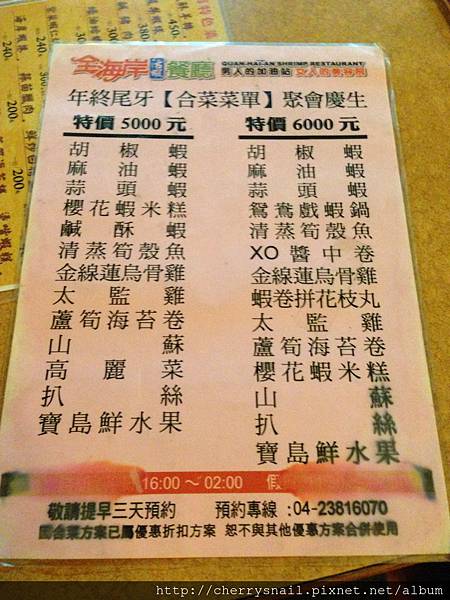 全海岸
活蝦
餐廳
QUAN HAI AN SHRIMP RESTAURANT
男人的加油站 女人的美容院
年終尾牙【合菜菜單】聚會慶生
特價 5000 元
胡椒蝦
麻油蝦
蒜頭蝦
櫻花蝦米糕
鹹酥蝦
清蒸筍殼魚
金線蓮烏骨雞
太監雞
蘆筍海苔卷
山蘇
高麗菜
扒絲
寶島鮮水果
特價 6000 元
胡椒蝦
麻油蝦
蒜頭蝦
鴛鴦戲蝦鍋
清蒸筍殼魚
XO醬中卷
金線蓮烏骨雞
蝦卷拼花枝丸
太監雞
蘆筍海苔卷
櫻花蝦米糕
山蘇
扒絲
寶島鮮水果
16:00～02:00 假
敬請提早三天預約 預約專線:04-23816070
圖合菜方案已屬優惠折扣方案 恕不與其他優惠方案合併使用
http://cherrysnail.pixnet.net/album